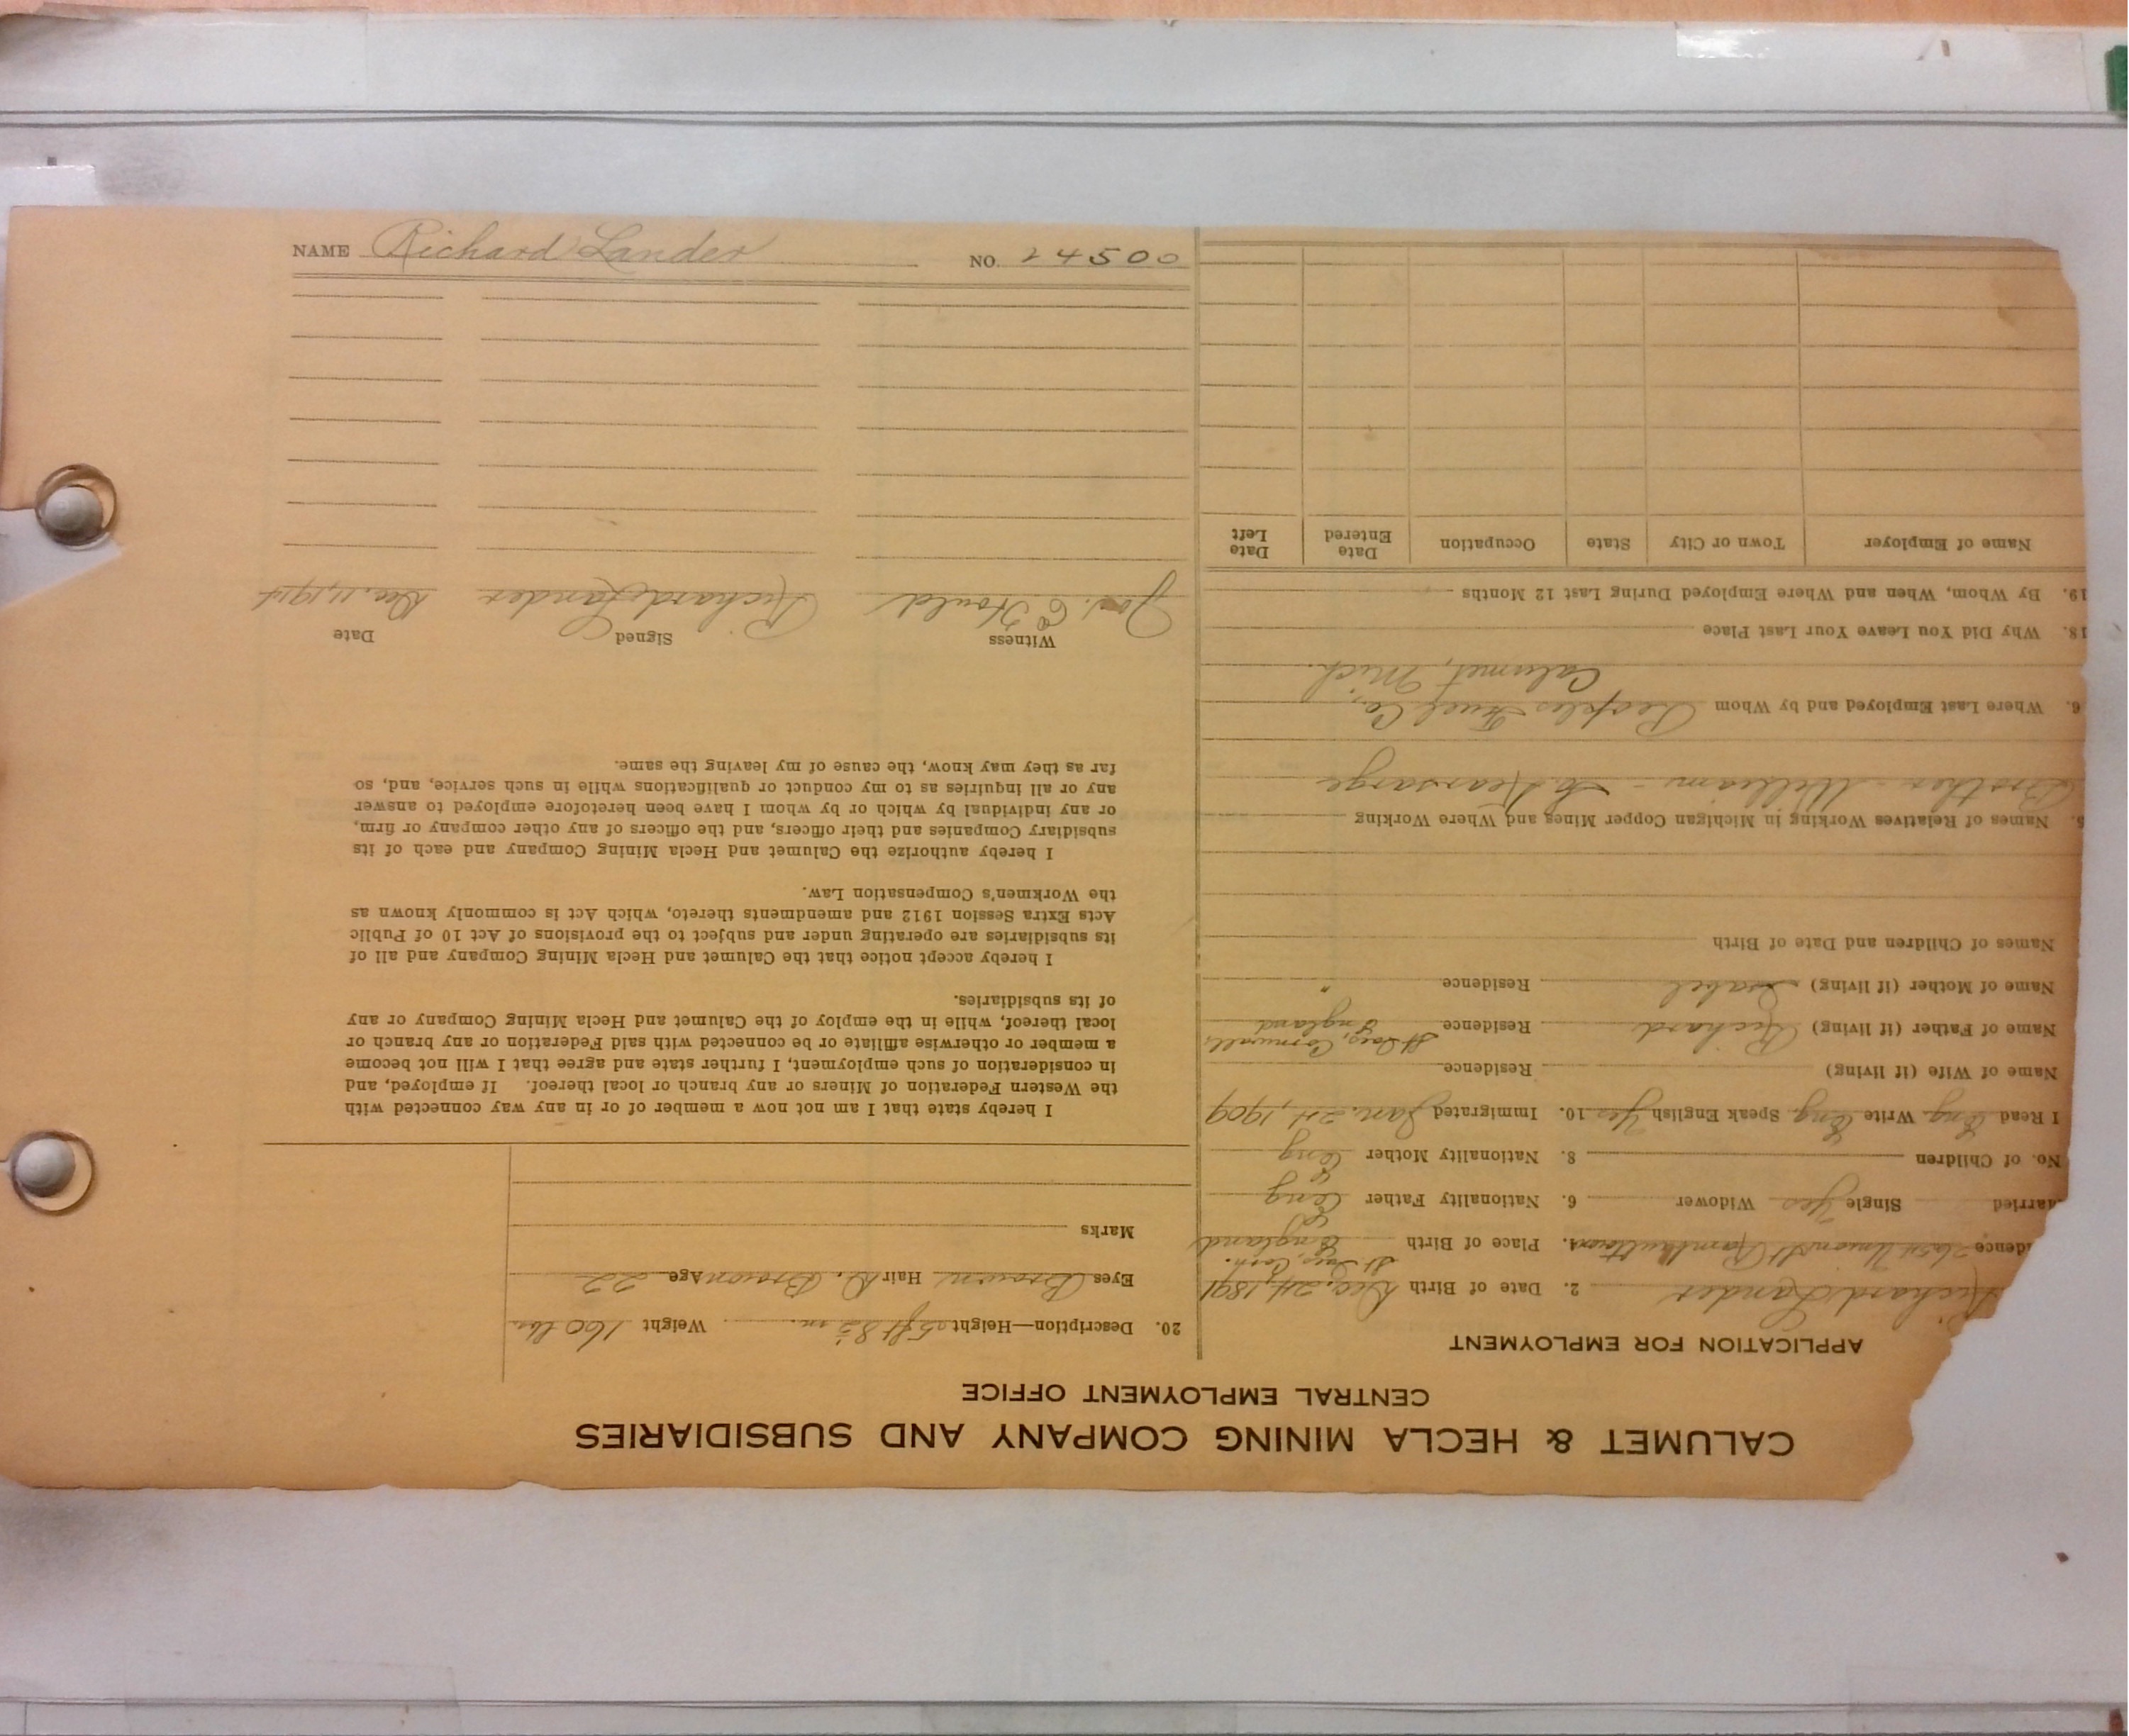 NAME Richard Lander NO. 24500
CALUMET & HECLA MINING COMPANY AND SUBSIDIARIES
CENTRAL EMPLOYMENT OFFICE
APPLICATION FOR EMPLOYMENT
Richard Lander 2. Date of Birth Dec. 24, 1891
St Ives, Corn.
idence Union St 4. Place of Birth England
arried Single Yes Widower 6. Nationality Father Eng
No. of Children 8. Nationality Mother Eng
I Read Eng Write Eng. Speak English Yes 10. Immigrated Jan. 24, 1909
Name of Wife (if living) Residence
St Ives, Cornwall,
Name of Father (if living) Richard Residence England
Name of Mother (if living) Isabel Residence "
Names of Children and Date of Birth
5. Names of Relatives Working in Michigan Copper Mines and Where Working
Brother - William - Kearsarge
6. Where Last Employed and by Whom Peoples Fuel Co,
Calumet, Mich.
18. Why Did You Leave Your Last Place
19. By Whom, When and Where Employed During Last 12 Months
Name of Employer Town or City State Occupation Date Entered Date Left
20. Description—Height 5 ft 8½ in. Weight 160 lbs
Eyes Brown Hair D. Brown Age 22
Marks
I hereby state that I am not now a member of or in any way connected with
the Western Federation of Miners or any branch or local thereof. If employed, and
in consideration of such employment, I further state and agree that I will not become
a member or otherwise affiliate or be connected with said Federation or any branch or
local thereof, while in the employ of the Calumet and Hecla Mining Company or any
of its subsidiaries.
I hereby accept notice that the Calumet and Hecla Mining Company and all of
its subsidiaries are operating under and subject to the provisions of Act 10 of Public
Acts Extra Session 1912 and amendments thereto, which Act is commonly known as
the Workmen's Compensation Law.
I hereby authorize the Calumet and Hecla Mining Company and each of its
subsidiary Companies and their officers, and the officers of any other company or firm,
or any individual by which or by whom I have been heretofore employed to answer
any or all inquiries as to my conduct or qualifications while in such service, and, so
far as they may know, the cause of my leaving the same.
Witness Signed Date
Richard Lander Dec. 11, 1914